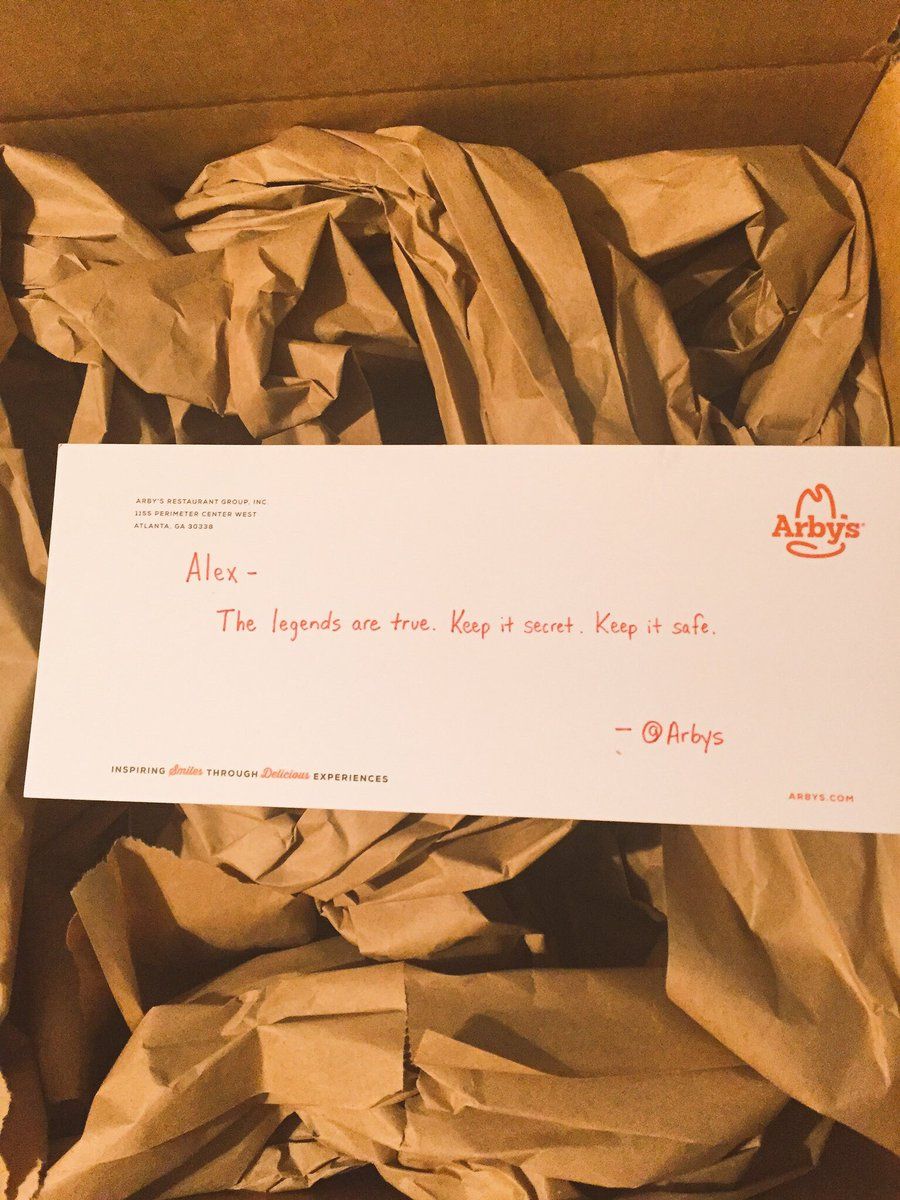 ARBY'S RESTAURANT GROUP, INC
1155 PERIMETER CENTER WEST
ATLANTA, GA 30338
Arby's
Alex -
The legends are true. Keep it secret. Keep it safe.
- @Arbys
INSPIRING Smiles THROUGH Delicious EXPERIENCES
ARBYS.COM